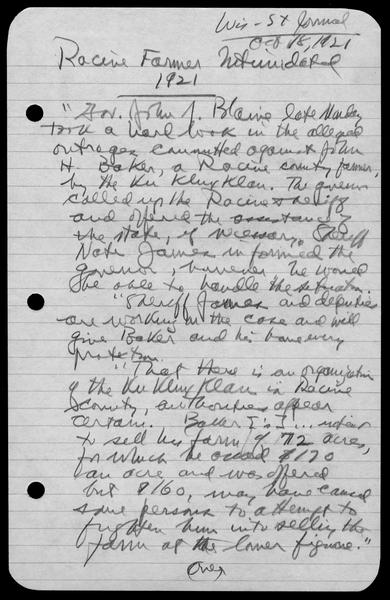 Wis - St Journal
Oct 18, 1921
Racine Farmer Intimidated
1921
"Gov. John J. Blaine late Monday
took a hand in the alleged
outrages committed against John
H. Baker, a Racine county farmer,
by the Ku Klux Klan. The governor
called up the Racine sheriff
and offered the assistance of
the state, if necessary. Sheriff
Nate James informed the
governor, however he would
be able to handle the situation.
"Sheriff James and deputies
are working on the case and will
give Baker and his home every
protection.
"That there is an organization
of the Ku Klux Klan in Racine
County, authorities appear
certain. Baker [:]...
to sell his farm of 72 acres,
for which he asked $170
an acre and was offered
but $160, may have caused
some persons to attempt to
frighten him into selling the
farm at the lower figure."
(over)